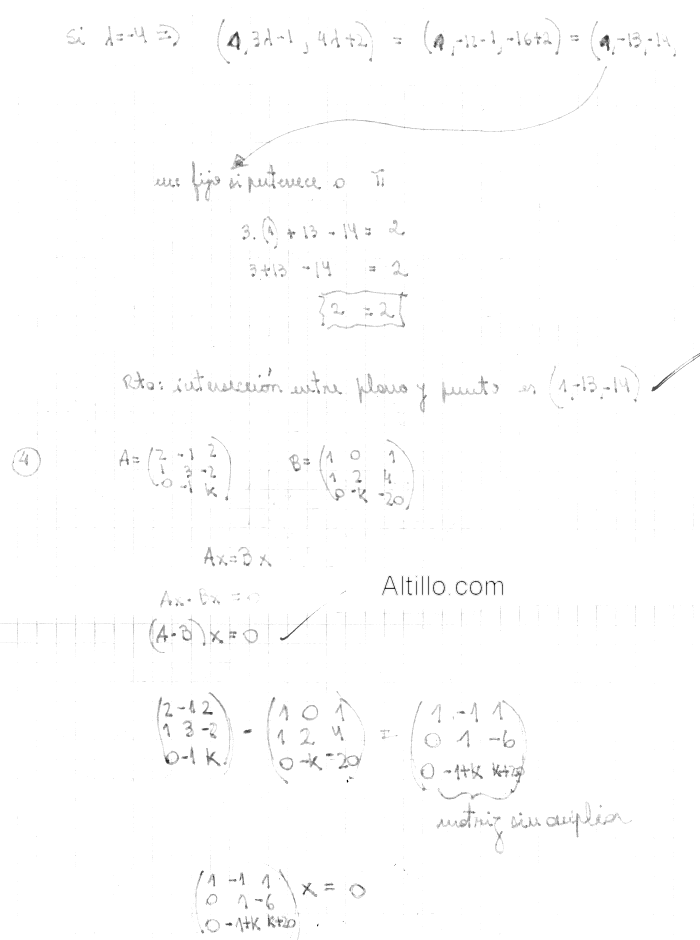 Si λ=-4 => (1, 3λ-1, 4λ+2) = (1, -12-1, -16+2) = (1, -13, -14)
me fijo si pertenece a π
3.(1) + 13 - 14 = 2
3+13 -14 = 2
2 = 2
Rta: intersección entre plano y punto es (1, -13, -14)
4
A= (2 -1 2 B= (1 0 1
1 3 -2 1 2 4
0 -1 K) 0 -K -20)
Ax=Bx
Ax-Bx=0
(A-B).x=0
Altillo.com
(2 -1 2 (1 0 1 (1 -1 1
1 3 -2 - 1 2 4 = 0 1 -6
0 -1 K) 0 -K -20) 0 -1+K K+20)
matriz sin ampliar
(1 -1 1
0 1 -6 x = 0
0 -1+K K+20)